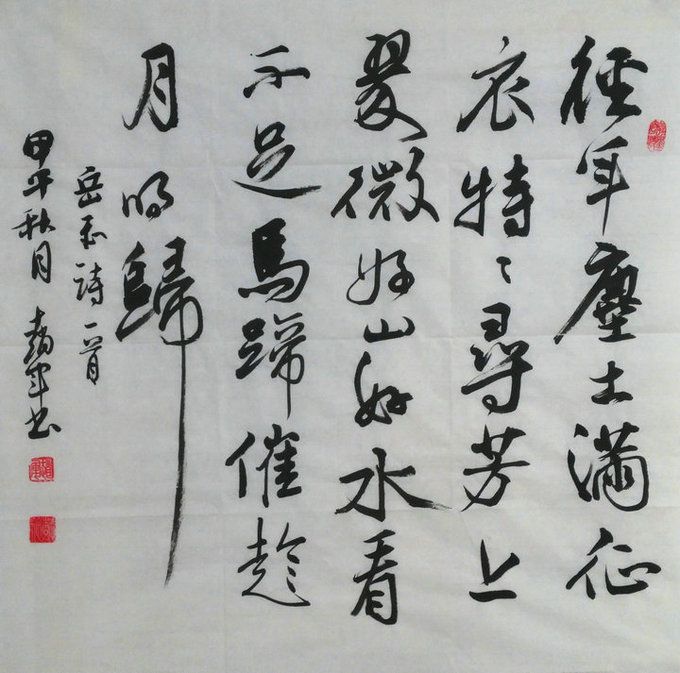 經年塵土滿征
衣特々尋芳上
翠微好山好水看
不足馬蹄催趁
月明歸
岳飛詩一首
甲午秋月 軍书